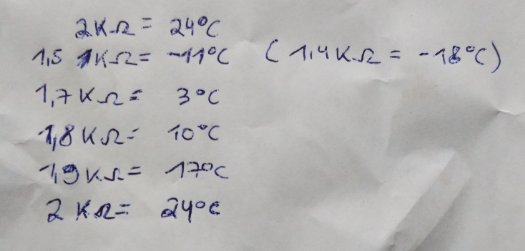 2KΩ = 24°C
1,5 KΩ= -11°C (1,4KΩ = -18°C)
1,7KΩ= 3°C
1,8KΩ= 10°C
1,9KΩ= 17°C
2KΩ= 24°C